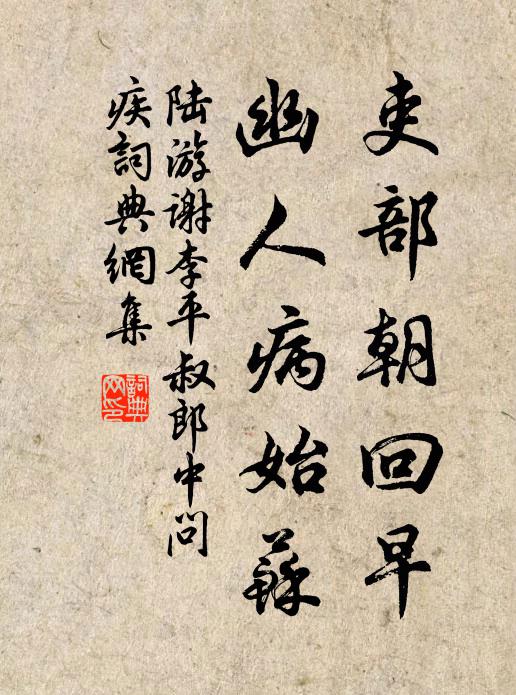 吏部朝回早
幽人病始蘇
陸游谢李平叔郎中問
疾詞典網集
詞典
网印